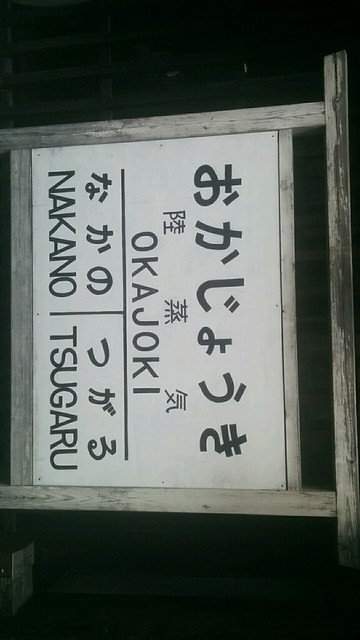 おかじょうき
陸蒸気
OKAJOKI
なかの つがる
NAKANO TSUGARU